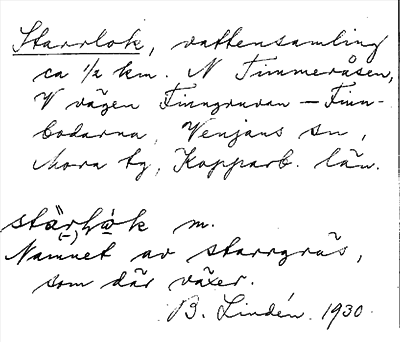 Starrlok, vattensamling
ca 1/2 km. N Timmeråsen,
V vägen Finngruvan — Finn-
bodarna, Venjans sn,
Mora tg, Kopparb. län.
m.
Namnet av starrgräs,
som där växer.
B. Lindén. 1930.